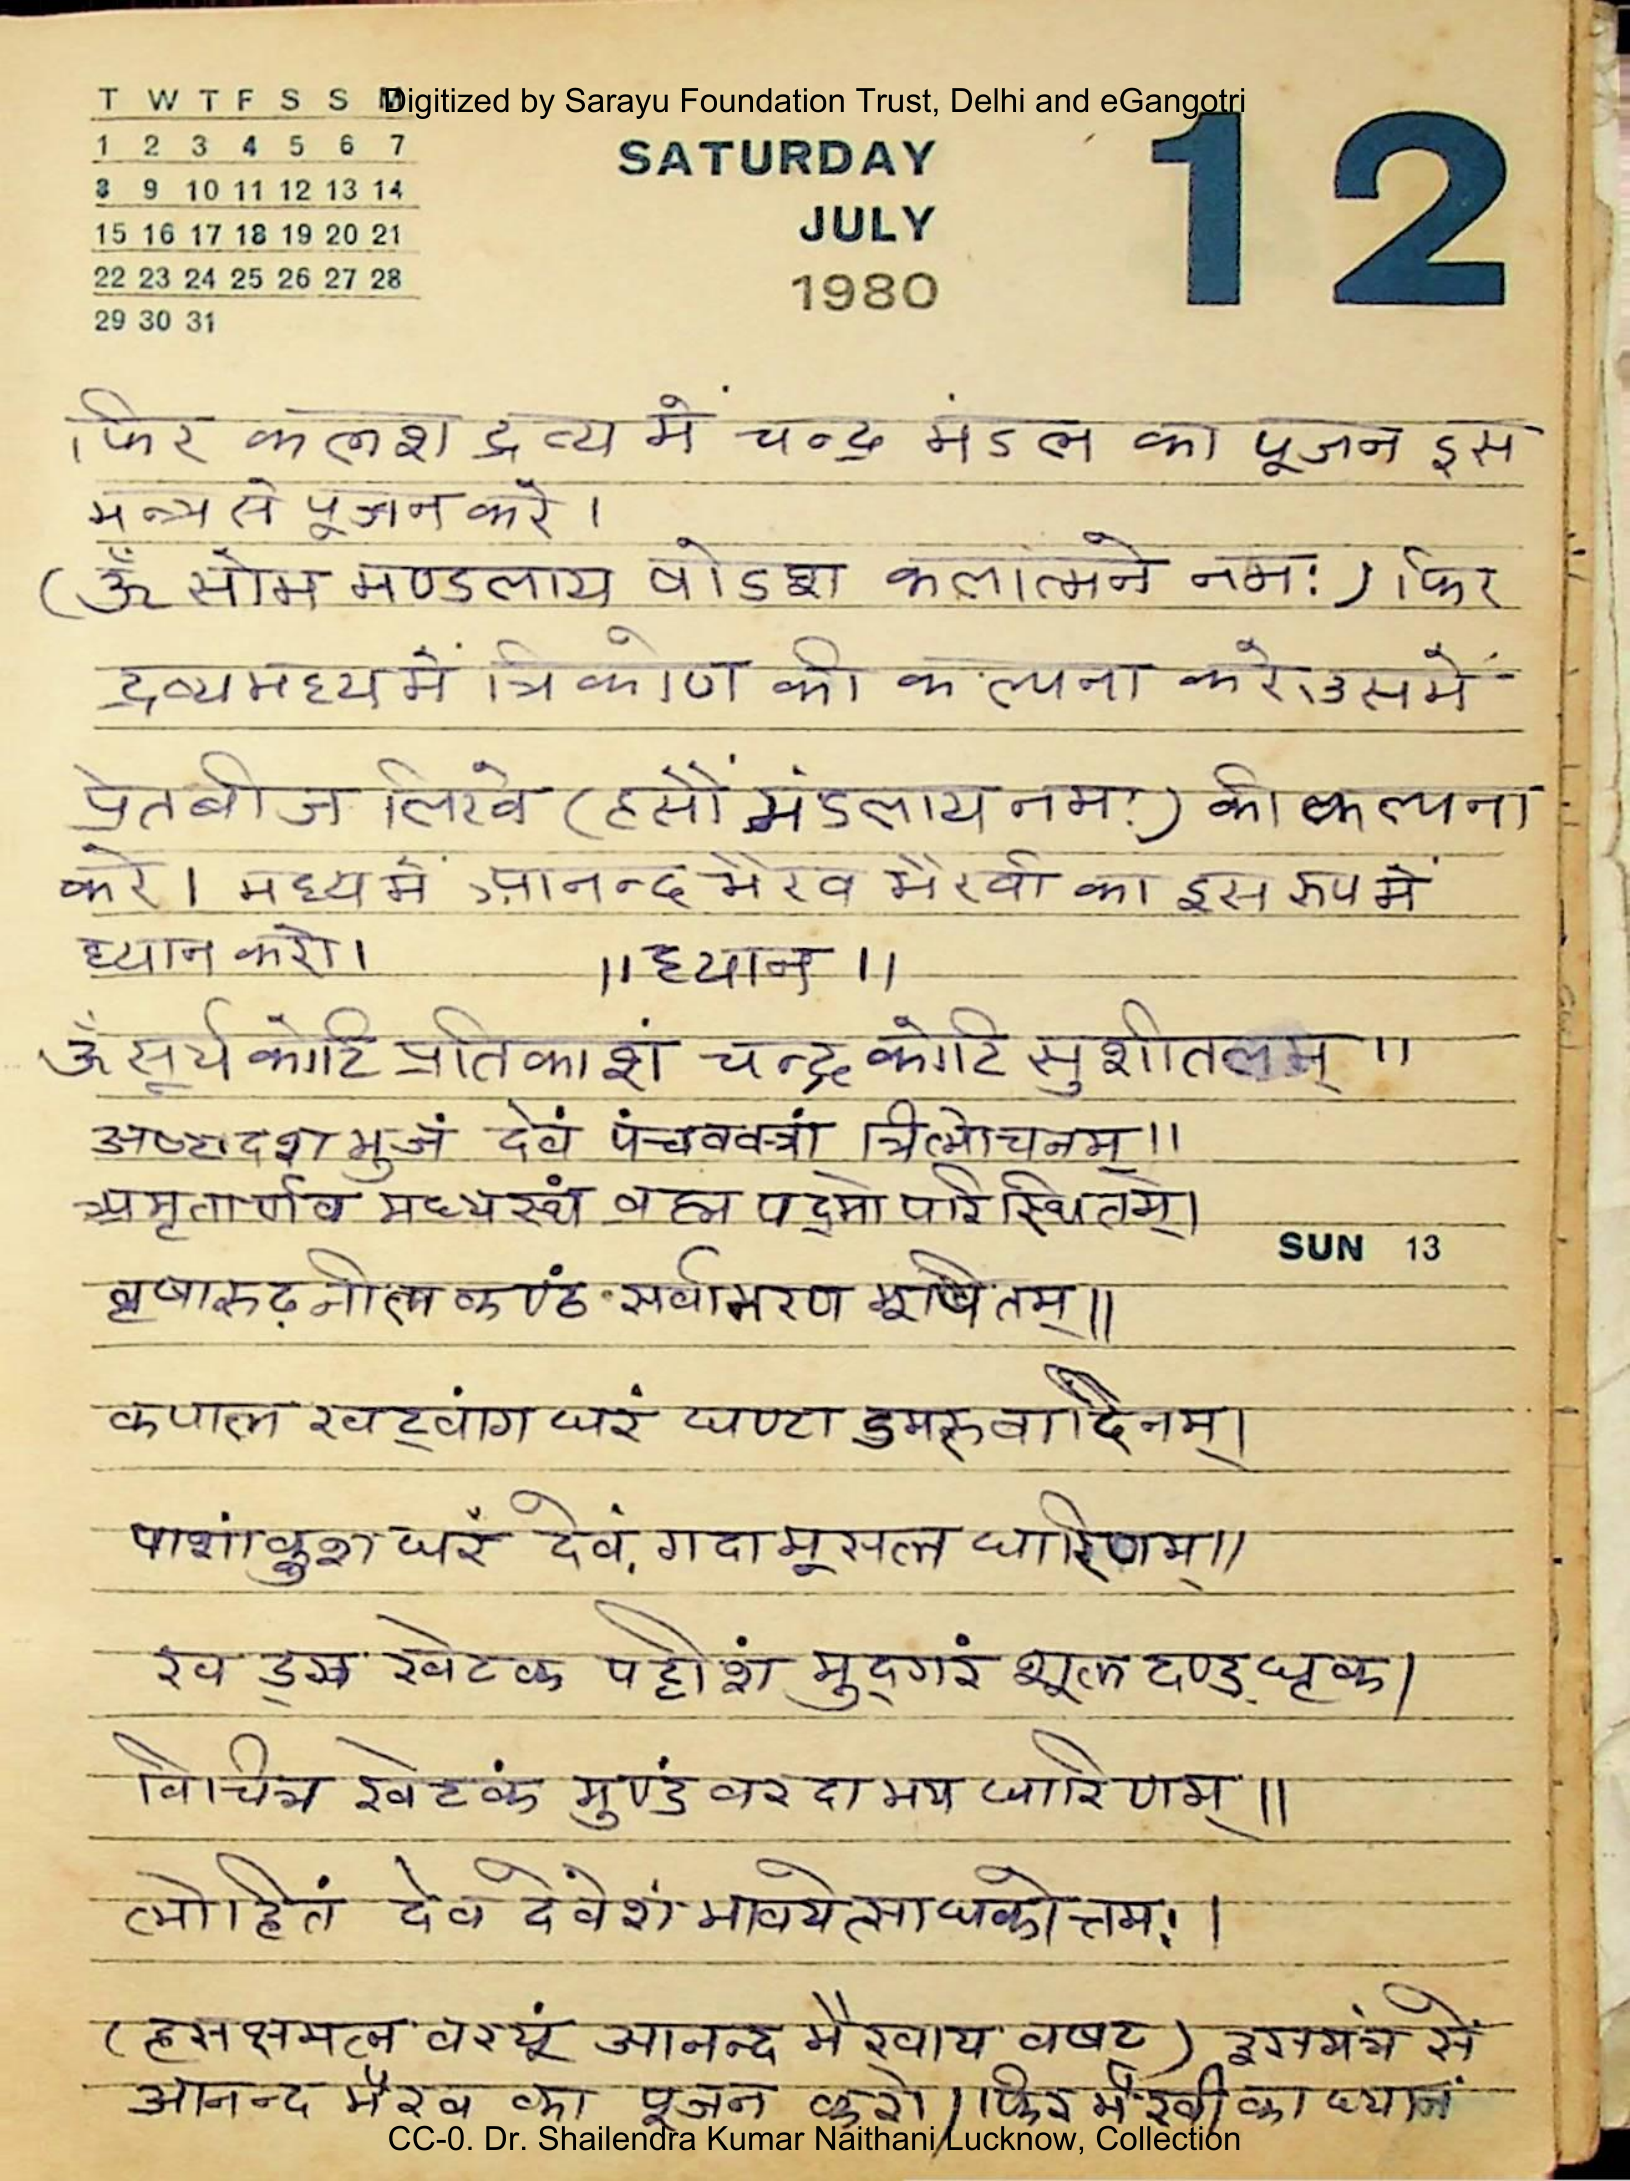 Digitized by Sarayu Foundation Trust, Delhi and eGangotri
T W T F S S M
1 2 3 4 5 6 7
8 9 10 11 12 13 14
15 16 17 18 19 20 21
22 23 24 25 26 27 28
29 30 31
SATURDAY
JULY
1980
12
फिर कलश द्रव्य में चन्द्र मंडल का पूजन इस
मन्त्र से पूजन करें ।
(ॐ सोम मण्डलाय षोडश कलात्मने नमः) फिर
द्रव्यमध्य में त्रिकोण की कल्पना करे। उसमें
प्रेतबीज लिखे (हसौं मंडलाय नमः) की कल्पना
करे । मध्य में आनन्द भैरव भैरवी का इस रूप में
ध्यान करो। ॥ ध्यान ॥
ॐ सूर्य कोटि प्रतिकाशं चन्द्र कोटि सुशीतलम् ॥
अष्टादश भुजं देवं पंचवक्त्रां त्रिलोचनम् ॥
अमृतार्णव मध्यस्थं ब्रह्म पद्मोपरि स्थितम्।
वृषारूढ़ नील कण्ठं सर्वाभरण भूषितम् ॥
कपाल खट्वांग धरं घण्टा डुमरू वादिनम्।
पाशांकुश धरं देवं गदा मूसल धारिणम् ॥
खड्ग खेटक पट्टीशं मुद्गरं शूल दण्ड धृक।
विचित्र खेटकं मुण्डं वरदाभय धारिणम् ॥
लोहितं देव देवेशं भावयेत्साधकोत्तमः ।
(हसक्षमल वरयूं आनन्द भैरवाय वषट) इस मंत्र सें
आनन्द भैरव का पूजन करो। फिर भैरवी का ध्यान
SUN 13
CC-0. Dr. Shailendra Kumar Naithani Lucknow, Collection